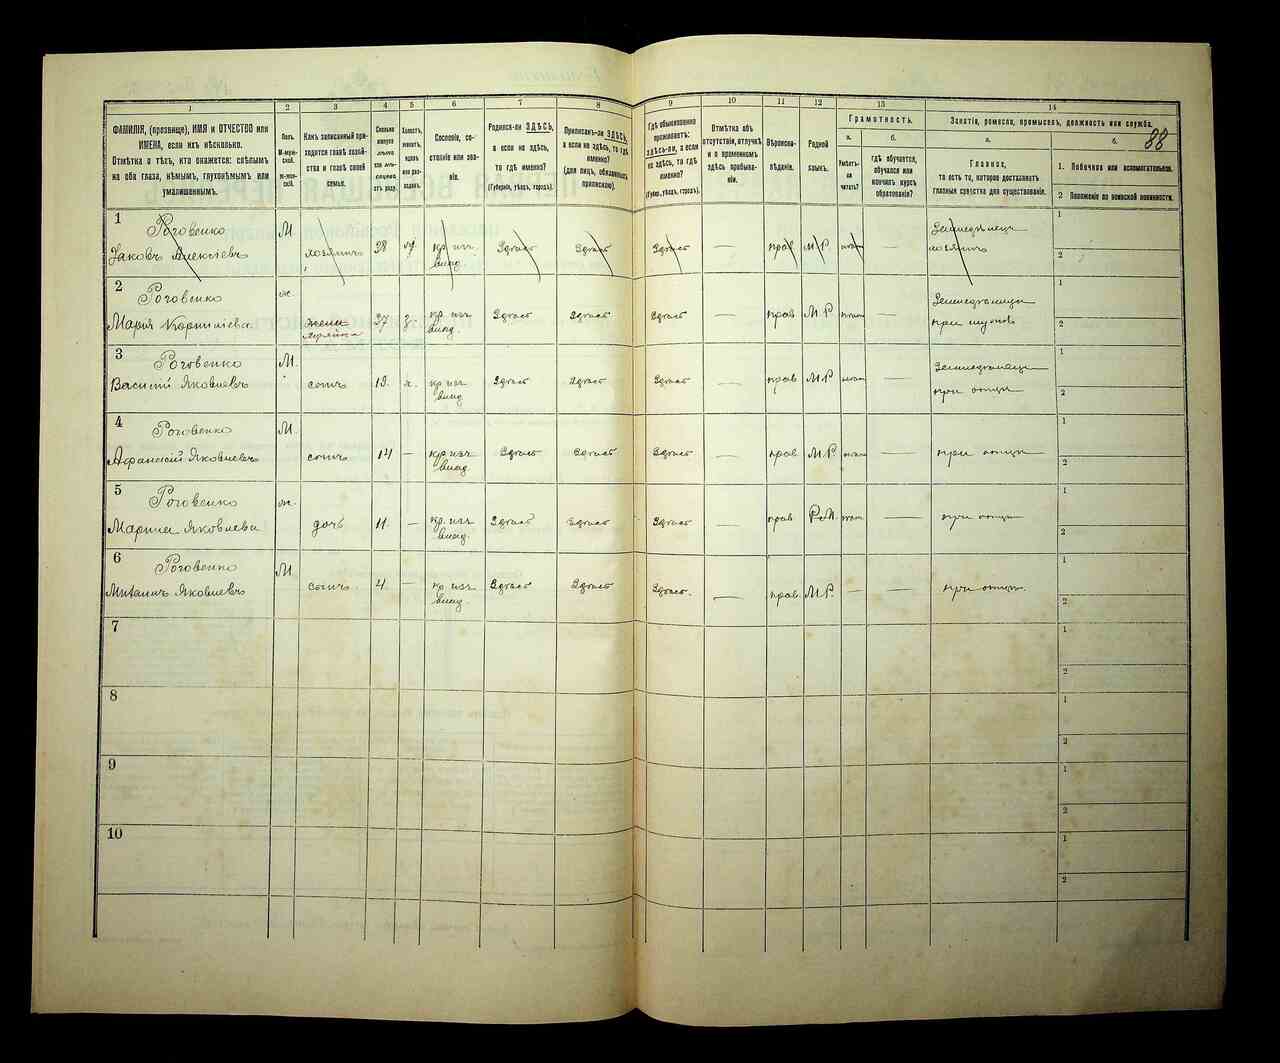 1 2 3 4 5 6 7 8 9 10 11 12 13 14
ФАМИЛІЯ, (прозвище), ИМЯ и ОТЧЕСТВО или
ИМЕНА, если ихъ нѣсколько.
Отмѣтка о тѣхъ, кто окажется: слѣпымъ
на оба глаза, нѣмымъ, глухонѣмымъ или
умалишеннымъ.
Полъ.
М-муж-
ской.
Ж-жен-
скій.
Какъ записанный при-
ходится главѣ хозяй-
ства и главѣ своей
семьи.
Сколько
минуло
лѣтъ
отъ роду.
Холостъ,
женатъ,
вдовъ
или раз-
веденъ.
Сословіе, со-
стояніе или зва-
ніе.
Родился-ли ЗДѢСЬ,
а если не здѣсь,
то гдѣ именно?
(Губернія, уѣздъ, городъ).
Приписанъ-ли ЗДѢСЬ,
а если не здѣсь, то гдѣ
именно?
(для лицъ, обязанныхъ
припискою).
Гдѣ обыкновенно
проживаетъ:
здѣсь-ли, а если
не здѣсь, то гдѣ
именно?
(Губерн., уѣздъ, городъ).
Отмѣтка объ
отсутствіи, отлучкѣ
и о временномъ
здѣсь пребыва-
ніи.
Вѣроиспо-
вѣданіе.
Родной
языкъ.
Грамотность.
а.
б.
Умѣетъ-
ли
читать?
гдѣ обучается,
обучался или
кончилъ курсъ
образованія?
Занятіе, ремесло, промыселъ, должность или служба.
88
а.
б.
Главное,
то есть то, которое доставляетъ
главныя средства для существованія.
1. Побочное или вспомогательное.
2 Положеніе по воинской повинности.
1 Роговенко М. 1
Яковъ Алексѣевъ хозяинъ 38 кр. изъ Здѣсь Здѣсь Здѣсь — прав М.Р. — Земледѣлецъ
влад. хозяинъ 2
2 Роговенко ж. 1
Марія Корниліева жена 37 кр. изъ Здѣсь Здѣсь Здѣсь — прав М.Р. — Земледѣлица
влад. при 2
3 Роговенко М. 1
Василій Яковлевъ сынъ 19. х. кр изъ Здѣсь Здѣсь Здѣсь — прав М.Р. —
влад. при отцѣ 2
4 Роговенко М. 1
Афанасій Яковлевъ сынъ 14 — кр изъ Здѣсь Здѣсь Здѣсь — прав. М.Р. — при отцѣ
влад. 2
5 Роговенко ж. 1
Марина Яковлева дочь 11. — кр. изъ Здѣсь Здѣсь Здѣсь — прав Р.М. — при отцѣ
влад. 2
6 Роговенко М. 1
Михаилъ Яковлевъ сынъ 4. — кр изъ Здѣсь Здѣсь Здѣсь. — прав. М.Р. — — при отцѣ.
влад. 2
7 1
2
8 1
2
9 1
2
10 1
2